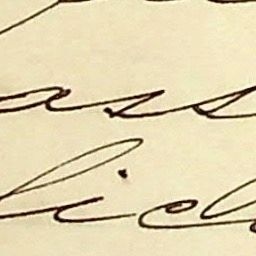 ass
lich